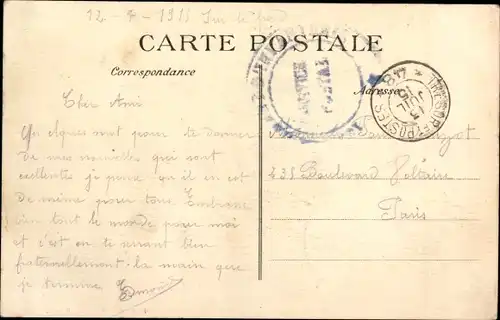 12-7-1915 Sur le front
CARTE POSTALE
Correspondance
Adresse
TRESOR ET POSTES * 148 *
15 JUIL
Cher Ami
Quelques mots pour te donner
de mes nouvelles qui sont
excellentes je pense qu'il en est
de même pour tous. Embrasse
bien tout le monde pour moi
et c'est en te serrant bien
fraternellement la main que
je termine Edmond
Monsieur
235 Boulevard Voltaire
Paris